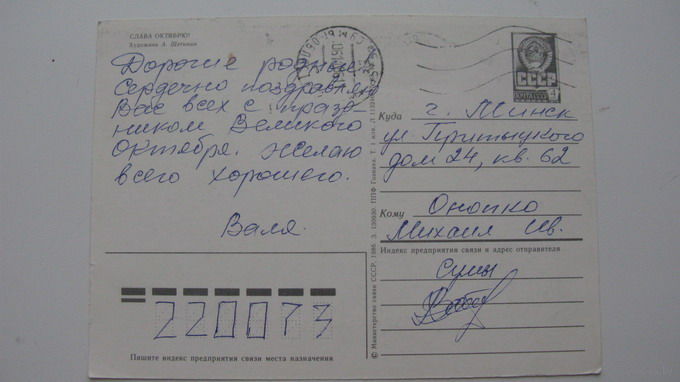 СЛАВА ОКТЯБРЮ!
Художник А. Щетинин
Дорогие родные
Сердечно поздравляю
Вас всех с празд-
ником Великого
Октября. Желаю
всего хорошего.
Валя.
СССР
ПОЧТА
4
Куда г. Минск
ул Притыцкого
дом 24, кв. 62
Кому Онопко
Михаил Ив.
Индекс предприятия связи и адрес отправителя
Сумы
220073
Пишите индекс предприятия связи места назначения
© Министерство связи СССР, 1986. З. 130030. ППФ Гознака.